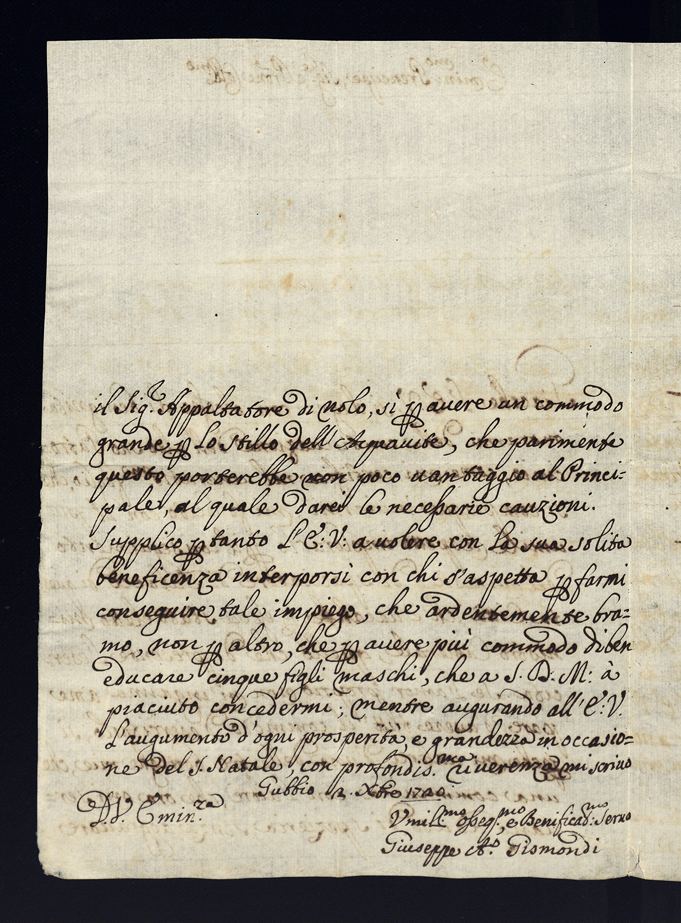 il Sig.r Appaltatore di nolo, sì p avere un commodo
grande p lo stillo dell'Acquavite, che parimente
questo porterebbe non poco vantaggio al Princi=
pale, al quale darei le necessarie cauzioni.
Supplico p tanto L'E: V: a volere con la sua solita
beneficenza interporsi con chi s'aspetta p farmi
conseguire tale impiego, che ardentemente bra=
mo, non p altro, che p avere più commodo di ben
educare cinque figli maschi, che a S. D. M: à
piaciuto concedermi; mentre augurando all'E: V:
L'augumento d'ogni prosperità, e grandezza in occasio=
ne del S. Natale, con profondis.ma riverenza mi scrivo
Gubbio 2 Xbre
D. V. Emin.za
Umil.mo osseq.mo, e Benificad.mo Servo
Giuseppe Gismondi